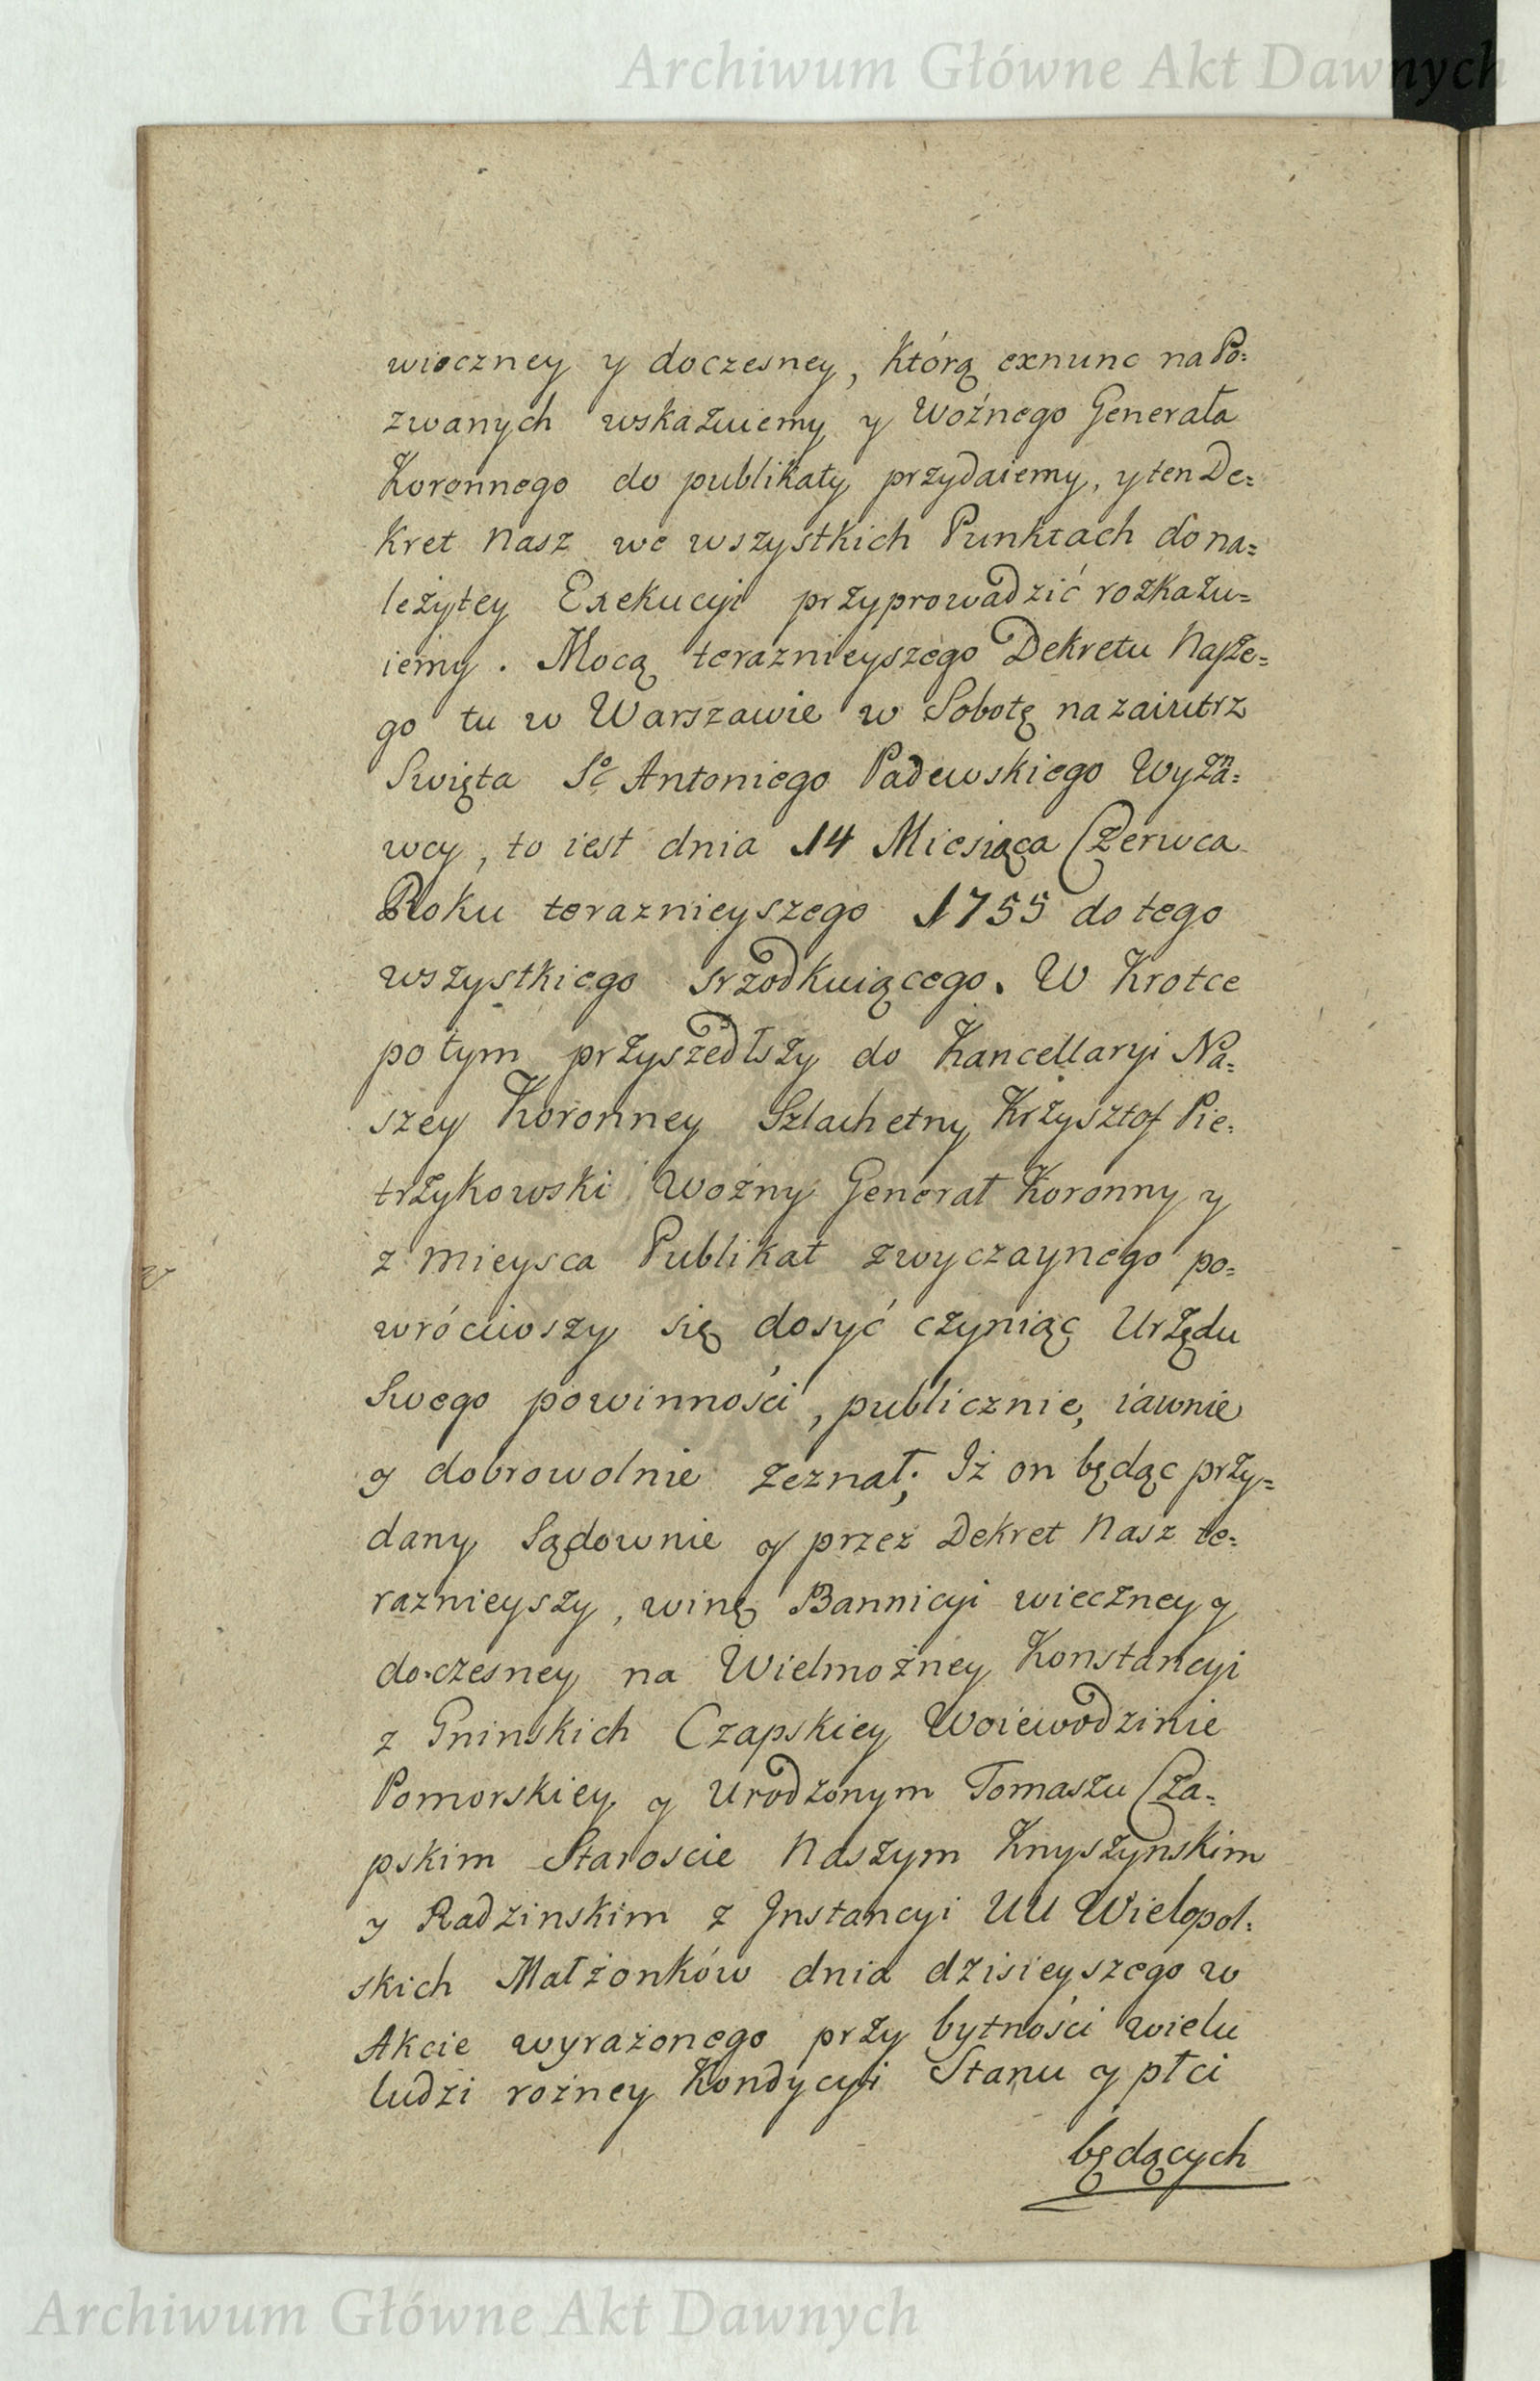 Archiwum Główne Akt Dawnych
wieczney y doczesney, którą exnunc na Po=
zwanych wskazuiemy y Woźnego Generała
Koronnego do publikaty przydaiemy, y ten De=
kret Nasz we wszystkich Punktach do na=
leżytey Exekucyi przyprowadzić rozkazu=
iemy. Mocą teraznieyszego Dekretu Nasze=
go tu w Warszawie w Sobotę nazaiutrz
Swięta So Antoniego Padewskiego Wyzna=
wcy, to iest dnia 14 Miesiąca Czerwca
Roku teraznieyszego 1755 do tego
wszystkiego srzodkuiącego. W Krotce
potym przyszedłszy do Kancellaryi Na=
szey Koronney Szlachetny Krzysztof Pie=
trzykowski Woźny Generał Koronny y
z mieysca Publikat zwyczaynego po=
wróciwszy się dosyć czyniąc Urzędu
Swego powinności, publicznie, iawnie
y dobrowolnie zeznał; Iż on będąc przy=
dany Sądownie y przez Dekret Nasz te=
raznieyszy, winę Bannicyi wieczney y
doczesney na Wielmożney Konstancyi
z Gninskich Czapskiey Woiewodzinie
Pomorskiey y Urodzonym Tomaszu Cza=
pskim Staroscie Naszym Knyszynskim
y Radzinskim z Instancyi UU Wielopol=
skich Małżonków dnia dzisieyszego w
Akcie wyrażonego przy bytności wielu
ludzi rożney Kondycyi Stanu y płci
będących
Archiwum Główne Akt Dawnych